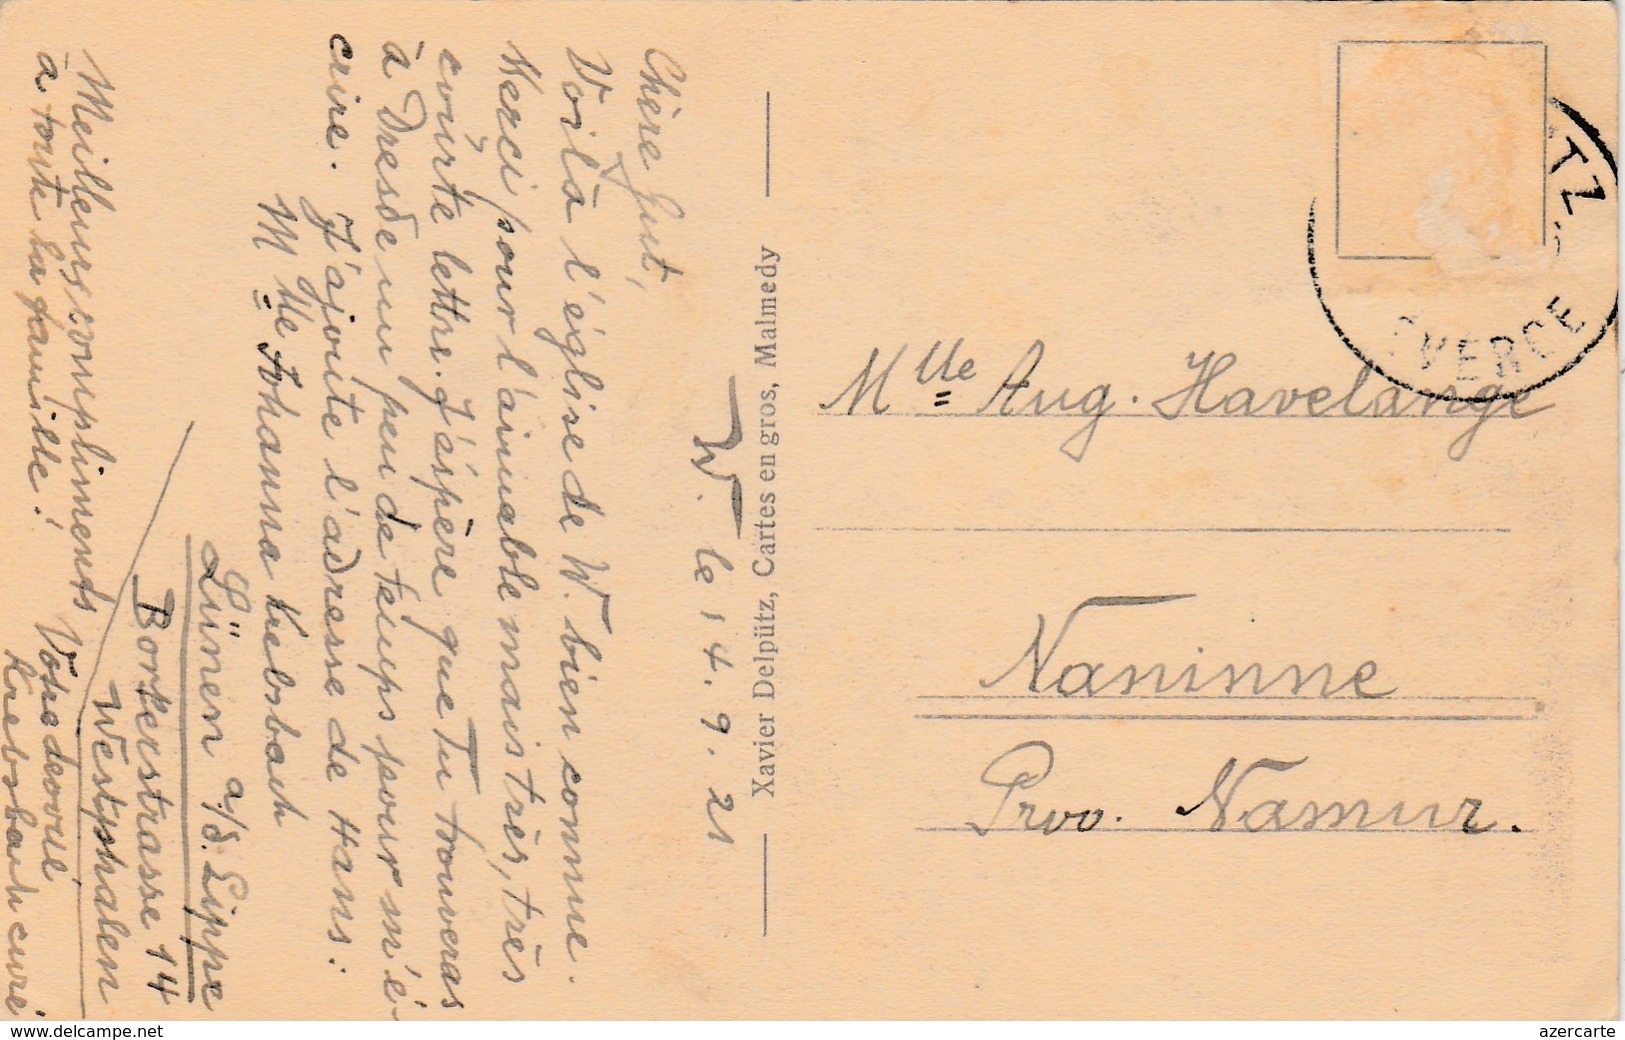 W. le 14. 9. 21
Chère Gust,
Voilà l'église de W. bien connue.
Merci pour l'aimable mais très, très
courte lettre. J'éspère que Tu trouveras
à Dresde un peu de temps pour m'é-
crire. J'ajoute l'adresse de Hans:
Mlle Johanna Krebsbach
Lünen a/d. Lippe
Borkerstrasse 14
Westphalen
Meilleurs complimends
à toute la famille!
Votre dévoué
Krebsbach curé
Xavier Delpütz, Cartes en gros, Malmedy
Mlle Aug. Havelange
Naninne
Prov. Namur.
www.delcampe.net
azercarte